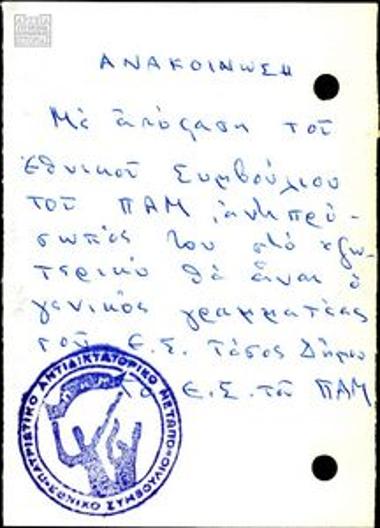 ΑΝΑΚΟΙΝΩΣΗ
Μὲ ἀπόφαση τοῦ
Ἐθνικοῦ Συμβούλιου
τοῦ ΠΑΜ, ἀντιπρό-
σωπός του στό ἐξω-
τερικό θά εἶναι ὁ
γενικός γραμματέας
τοῦ Ε.Σ. Τάσος Δήμου
Τό Ε.Σ. τοῦ ΠΑΜ
ΠΑΤΡΙΩΤΙΚΟ ΑΝΤΙΔΙΚΤΑΤΟΡΙΚΟ ΜΕΤΩΠΟ
ΕΘΝΙΚΟ ΣΥΜΒΟΥΛΙΟ